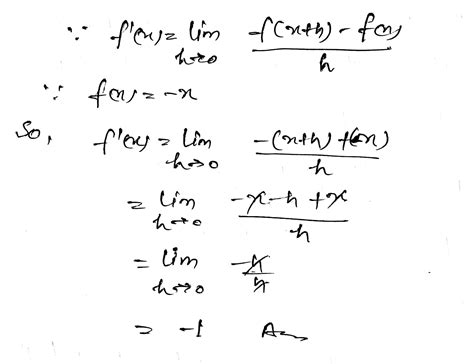 ∵ f'(x) = lim h→0 f(x+h) - f(x) / h
∵ f(x) = -x
So, f'(x) = lim h→0 -(x+h) + (x) / h
= lim h→0 -x-h+x / h
= lim h→0 -h / h
= -1 Ans